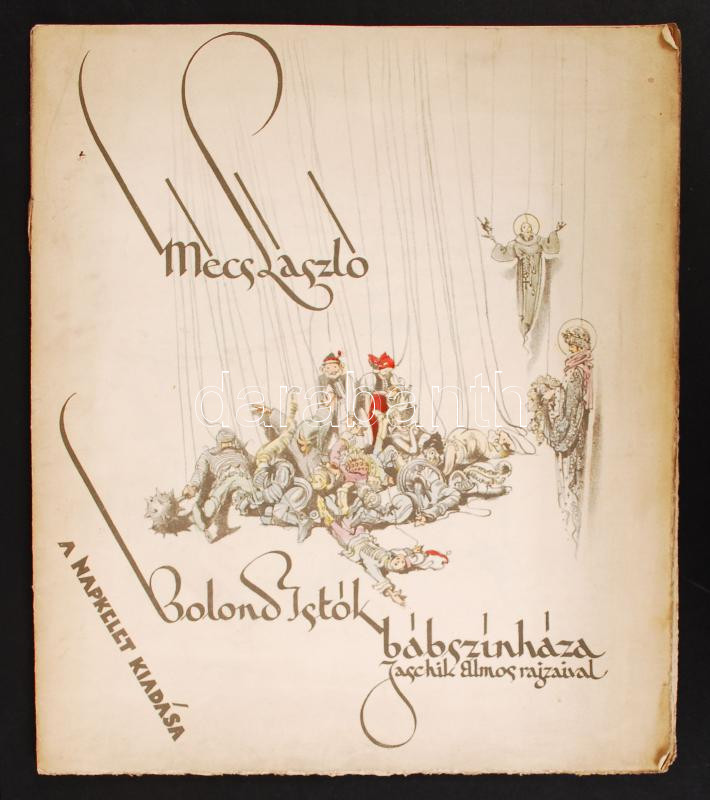 Mécs László
darabanth
Bolond Istók
bábszínháza
Jaschik Álmos rajzaival
A NAPKELET KIADÁSA